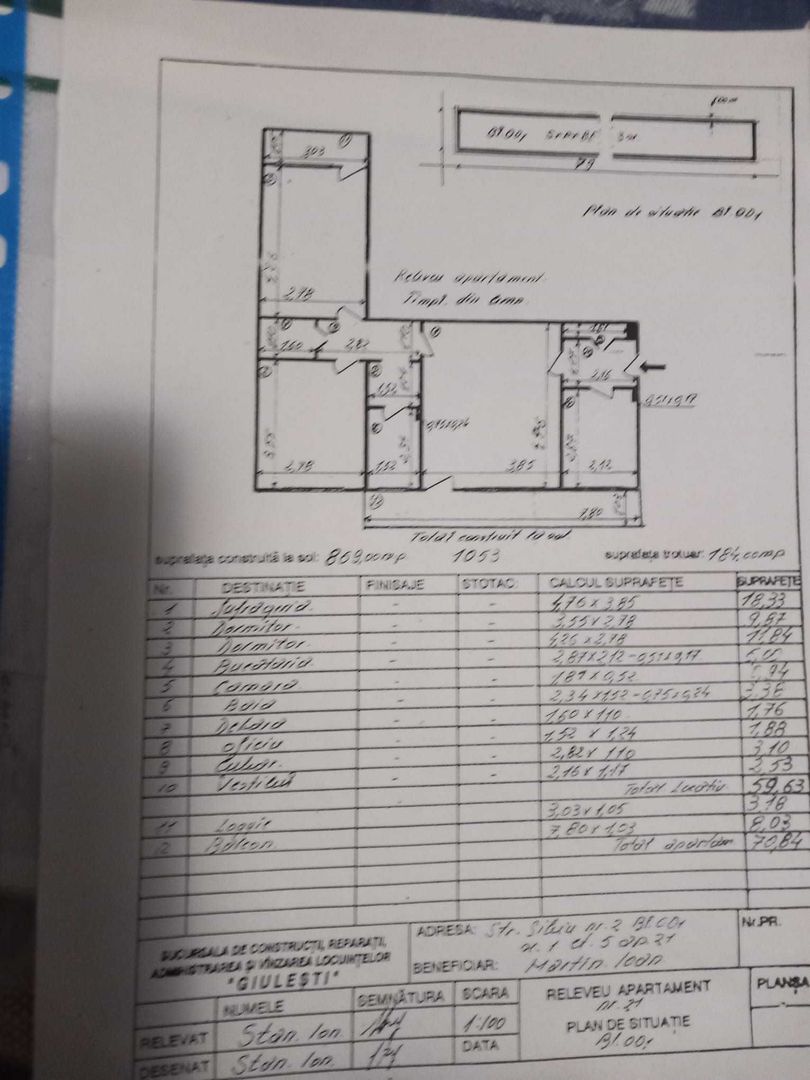 3,03
79
Plan de situatie Bl. OD1
Releveu apartament
Timpl. din lemn.
2,78
1,81
1,60
2,82
2,16
1,52
0,51x0,17
0,75x0,24
2,78
1,52
3,85
2,12
7,80
Total construit la sol
suprafața construită la sol: 869,00mp 1053 suprafața trotuar: 184,00mp
Nr. DESTINAȚIE FINISAJE STOTAC: CALCUL SUPRAFEȚE SUPRAFEȚE
1 Sufragerie - - 4,76 x 3,85 18,33
2 Dormitor - - 3,55 x 2,78 9,87
3 Dormitor - - 4,26 x 2,78 11,84
4 Bucătărie - - 2,87x2,12-0,51x0,17
5 Cămară - - 1,81 x 0,52
6 Baia - - 2,34x1,52-0,75x0,24 3,38
7 Debara - - 1,60 x 1,10 1,76
8 Oficiu - - 1,52 x 1,24 1,88
9 - - 2,82 x 1,10 3,10
10 Vestibul - - 2,16 x 1,17 2,53
Total Locativ 59,63
11 Loggie 3,03 x 1,05 3,18
12 Balcon 7,80 x 1,03 8,03
Total apartam 70,84
SUCURSALA DE CONSTRUCȚII, REPARAȚII,
ADMINISTRAREA ȘI VÎNZAREA LOCUINȚELOR
"GIULEȘTI"
ADRESA: Str. Silviu nr. 2 Bl. OD1
sc. 1 et. 5 ap. 21
BENEFICIAR: Martin Ioan
Nr.PR.
NUMELE SEMNĂTURA SCARA
RELEVAT Stan. Ion. 1:100
DESENAT Stan. Ion. DATA
RELEVEU APARTAMENT
nr. 21
PLAN DE SITUAȚIE
Bl. OD1
PLANȘA